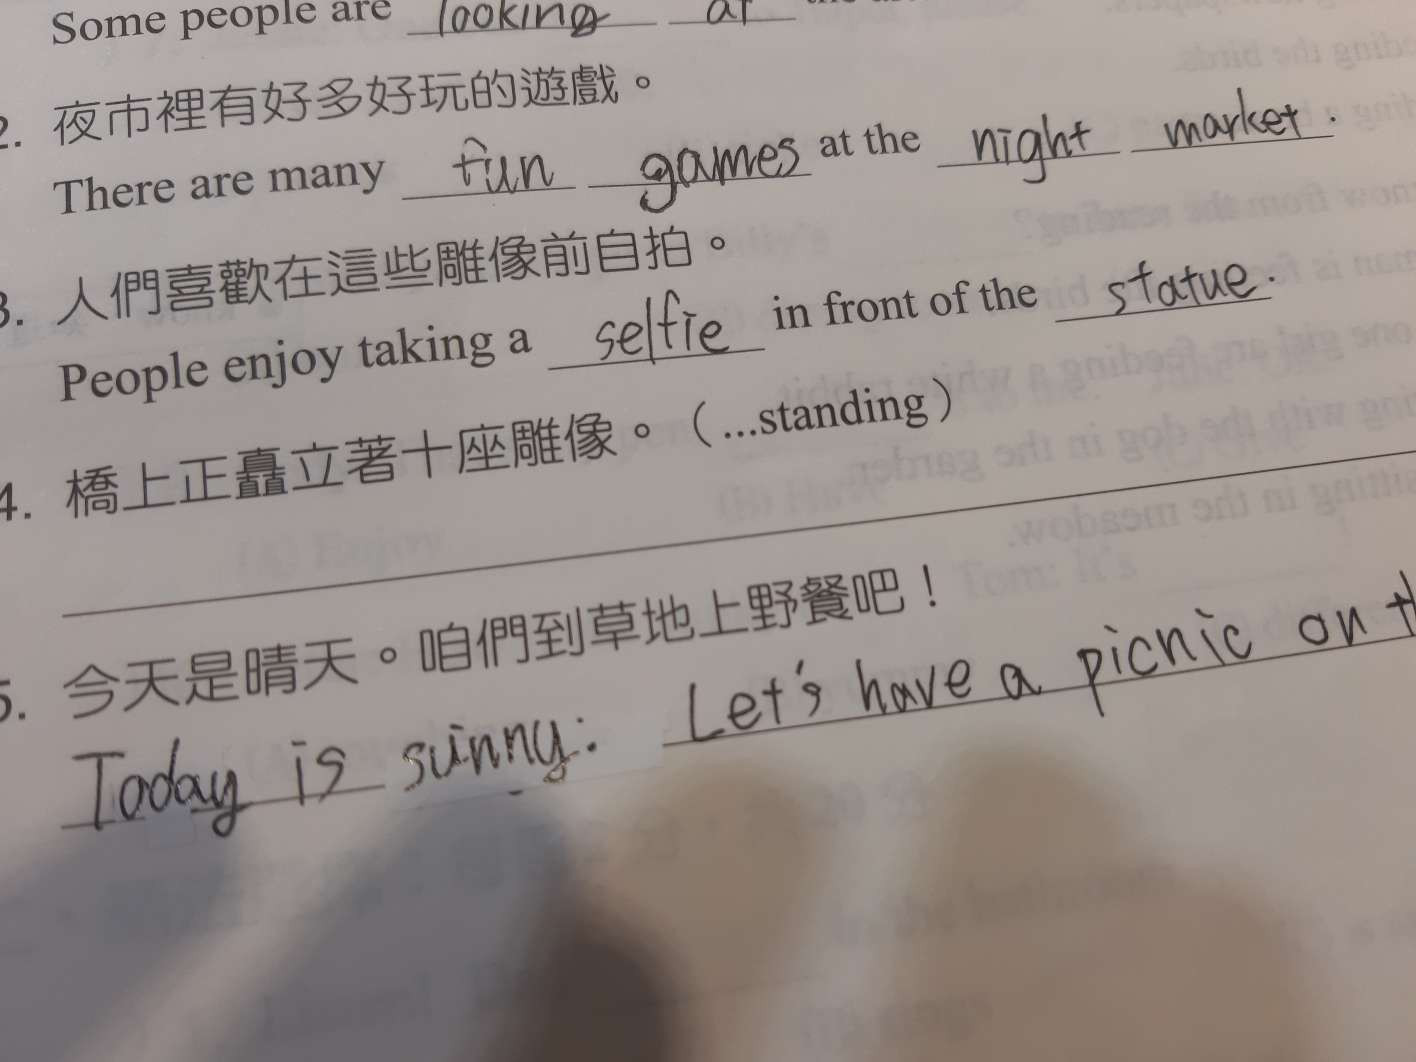 Some people are looking at
2. 夜市裡有好多好玩的遊戲。
There are many fun games at the night market.
3. 人們喜歡在這些雕像前自拍。
People enjoy taking a selfie in front of the statue.
4. 橋上正矗立著十座雕像。(...standing)
5. 今天是晴天。咱們到草地上野餐吧！
Today is sunny. Let's have a picnic on